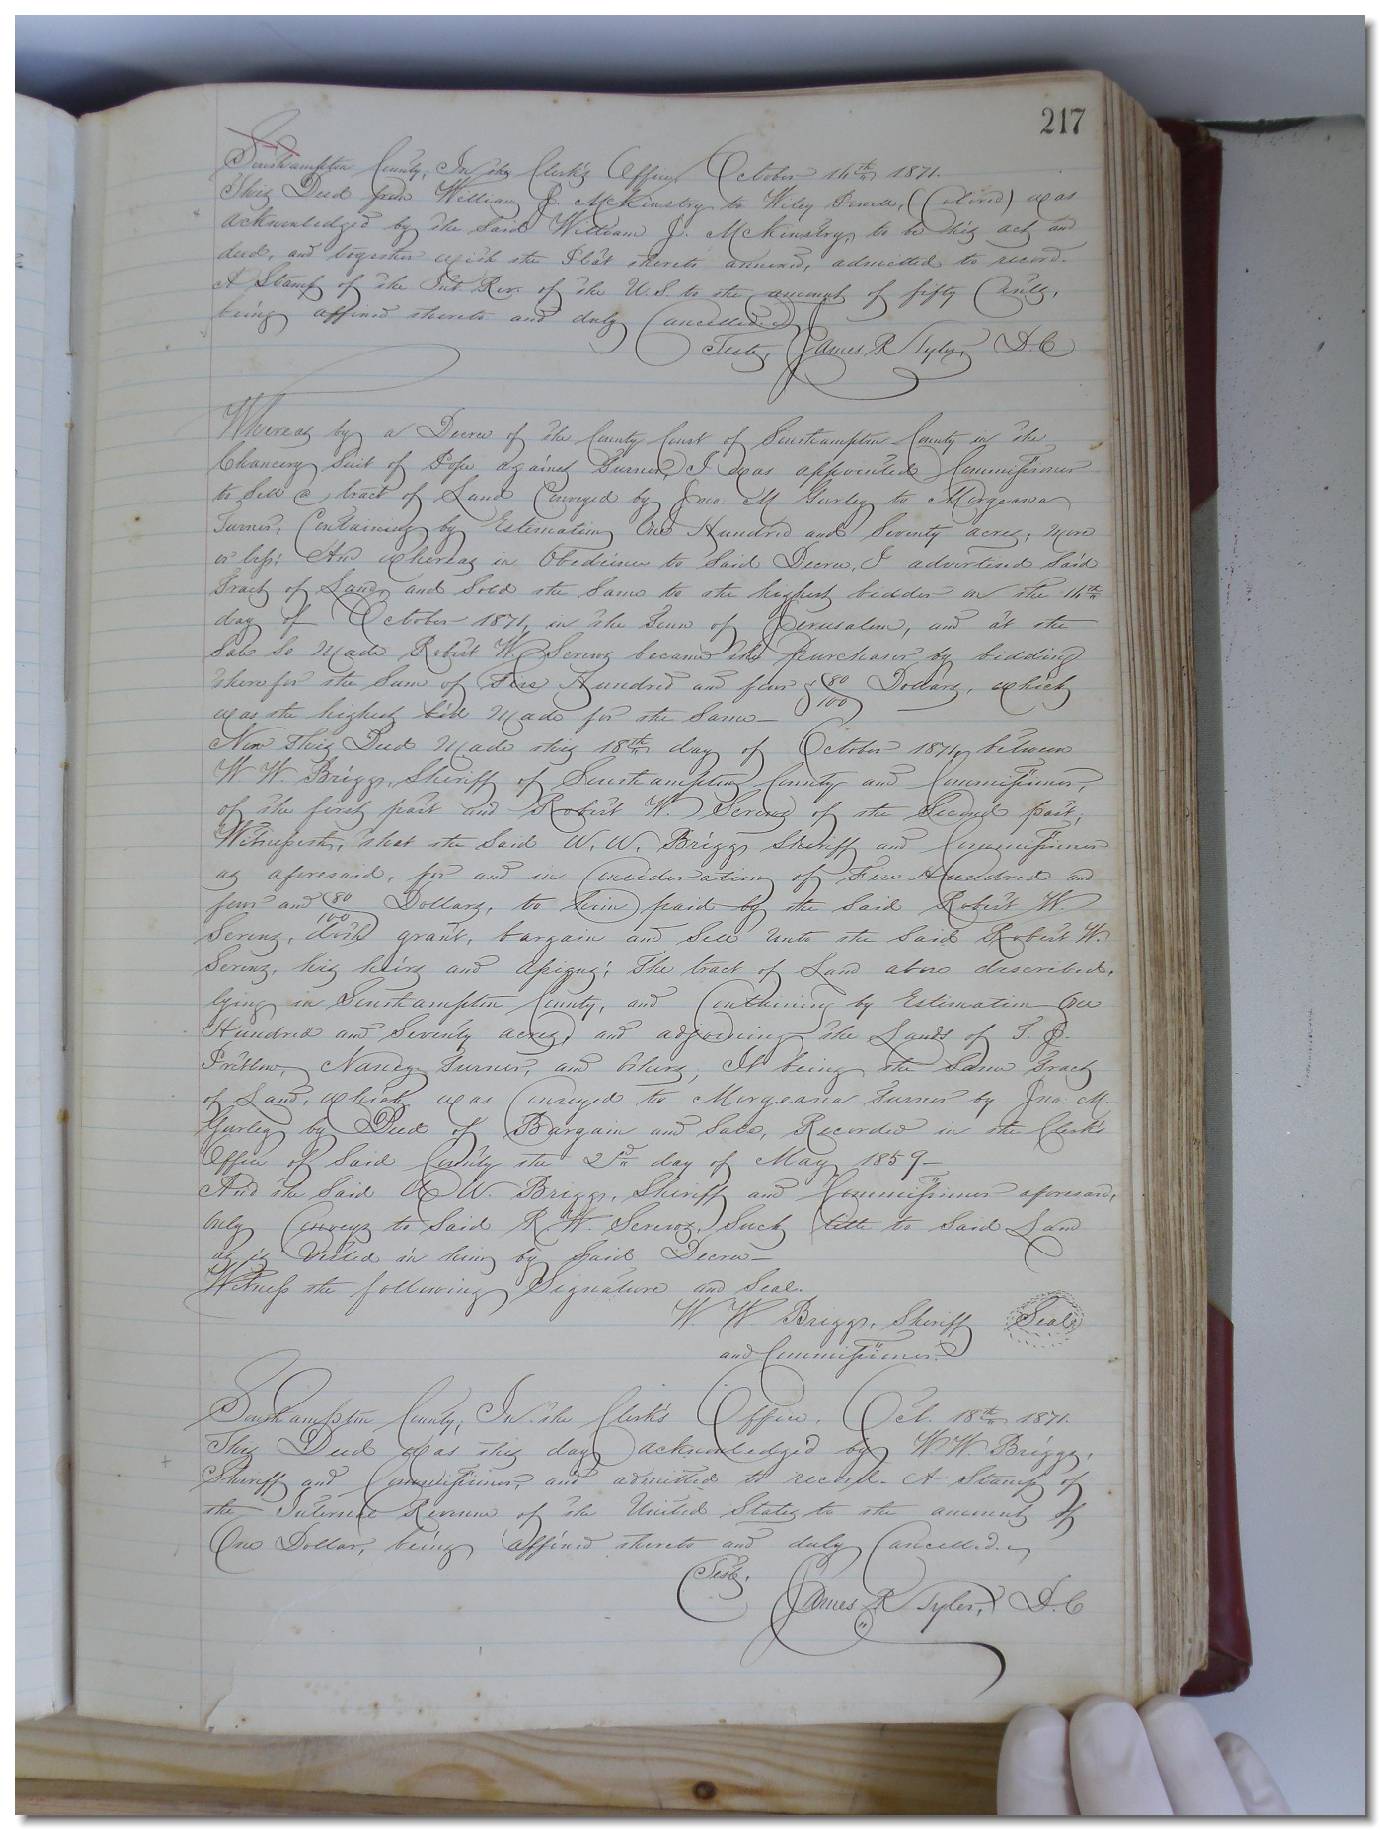 217
Southampton County, In the Clerk's Office October 16th 1871.
This Deed from William J. McKinstry to Wiley (Colored) was
acknowledged by the Said William J. McKinstry, to be his act and
deed, and together with the Plat thereto annexed, admitted to record.
A Stamp of the Int Rev. of the U.S. to the amount of fifty Cents,
being affixed thereto and duly Cancelled.
Teste, James R Tyler, D.C
Whereas by a Decree of the County Court of Southampton County in the
Chancery Suit of Pope against Turner, I was appointed Commissioner
to Sell a tract of Land Conveyed by Jno. M Gurley to Morgeana
Turner, Containing by Estimation One Hundred and Seventy acres, more
or less; And whereas in Obedience to Said Decree, I advertised Said
Tract of Land, and Sold the Same to the highest bidder on the 16th
day of October 1871, in the Town of Jerusalem, and at the
Sale So Made Robert W. Screws became the purchaser by bidding
therefor the Sum of Five Hundred and four 80/100 Dollars, which
was the highest bid Made for the Same—
Now this Deed Made this 18th day of October 1871, between
W W. Briggs, Sheriff of Southampton County and Commissioner,
of the first part and Robert W. Screws of the Second part,
Witnesseth, that the Said W. W. Briggs Sheriff and Commissioner
as aforesaid, for and in Consideration of Five Hundred and
four and 80/100 Dollars, to him paid by the Said Robert W.
Screws, doth grant, bargain and Sell unto the Said Robert W.
Screws, his heirs and assigns; The tract of Land above described,
lying in Southampton County, and Containing by Estimation One
Hundred and Seventy acres, and adjoining the Lands of T. J.
Pretlow, Nancy Turner, and Others, It being the Same Tract
of Land, which was Conveyed to Morgeana Turner by Jno. M.
Gurley by Deed of Bargain and Sale, Recorded in the Clerk's
Office of Said County the 2nd day of May 1859—
And the Said W W. Briggs, Sheriff and Commissioner aforesaid,
only Conveys to Said R W. Screws, Such title to Said Land
as is Vested in him by Said Decree—
Witness the following Signature and Seal.
W. W Briggs, Sheriff Seal
and Commissioner
Southampton County, In the Clerk's Office. Oct. 18th 1871.
This Deed was this day acknowledged by W W. Briggs,
Sheriff and Commissioner, and admitted to record. A Stamp of
the Internal Revenue of the United States to the amount of
One Dollar, being affixed thereto and duly Cancelled.
Teste,
James R Tyler, D.C